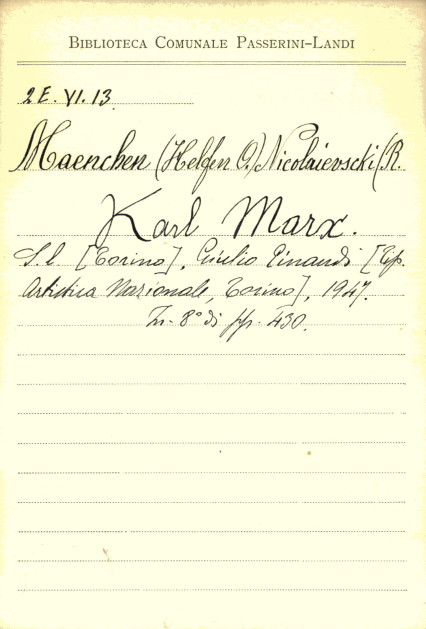 BIBLIOTECA COMUNALE PASSERINI-LANDI
2E. VI. 13
Maenchen (Helfen O.) Nicolaievscki (R.
Karl Marx.
S. l. [Torino], Giulio Einaudi [Tip.
Artistica Nazionale, Torino], 1947.
In-8° di pp. 430.